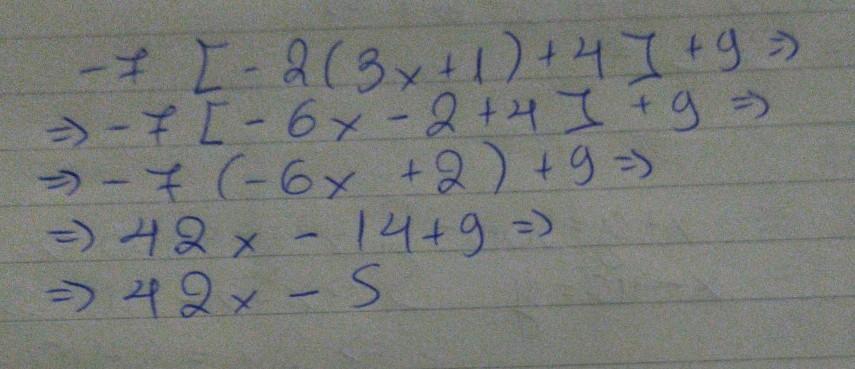 -7 [-2(3x+1)+4] +9 ⇒
⇒ -7 [-6x-2+4] +9 ⇒
⇒ -7 (-6x +2) +9 ⇒
⇒ 42x - 14+9 ⇒
⇒ 42x - 5